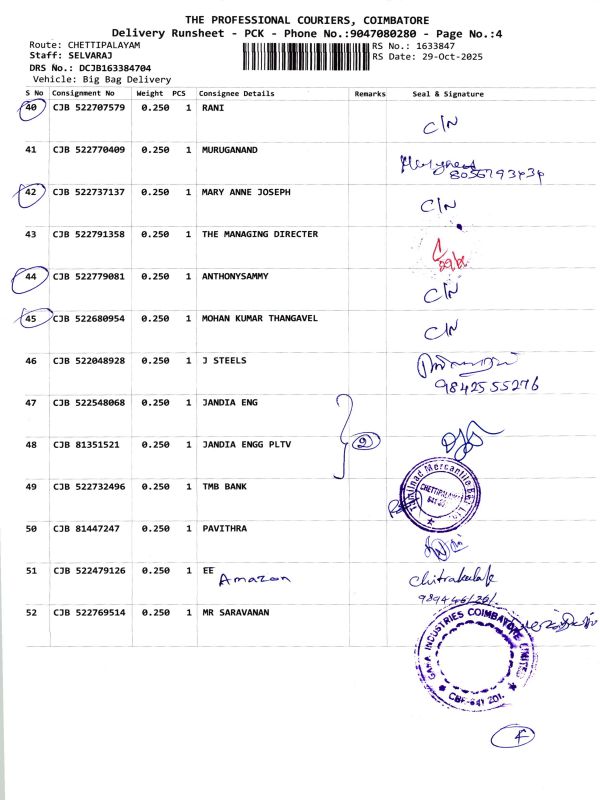 THE PROFESSIONAL COURIERS, COIMBATORE
Delivery Runsheet - PCK - Phone No.:9047080280 - Page No.:4
Route: CHETTIPALAYAM RS No.: 1633847
Staff: SELVARAJ RS Date: 29-Oct-2025
DRS No.: DCJB163384704
Vehicle: Big Bag Delivery
S No Consignment No Weight PCS Consignee Details Remarks Seal & Signature
40 CJB 522707579 0.250 1 RANI
C/N
41 CJB 522770409 0.250 1 MURUGANAND
42 CJB 522737137 0.250 1 MARY ANNE JOSEPH
C/N
43 CJB 522791358 0.250 1 THE MANAGING DIRECTER
44 CJB 522779081 0.250 1 ANTHONYSAMMY
C/N
45 CJB 522680954 0.250 1 MOHAN KUMAR THANGAVEL
C/N
46 CJB 522048928 0.250 1 J STEELS
9842555276
47 CJB 522548068 0.250 1 JANDIA ENG
2
48 CJB 81351521 0.250 1 JANDIA ENGG PLTV
49 CJB 522732496 0.250 1 TMB BANK
Tamilnad Mercantile Bank Ltd.
CHETTIPALAYAM
50 CJB 81447247 0.250 1 PAVITHRA
51 CJB 522479126 0.250 1 EE
Amazon
52 CJB 522769514 0.250 1 MR SARAVANAN
INDUSTRIES COIMBATORE LIMITED
CBE-641 201.
4